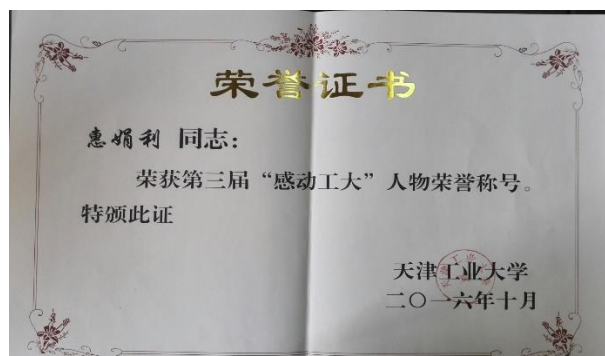 荣誉证书
惠娟利 同志：
荣获第三届“感动工大”人物荣誉称号。
特颁此证
天津工业大学
二〇一六年十月